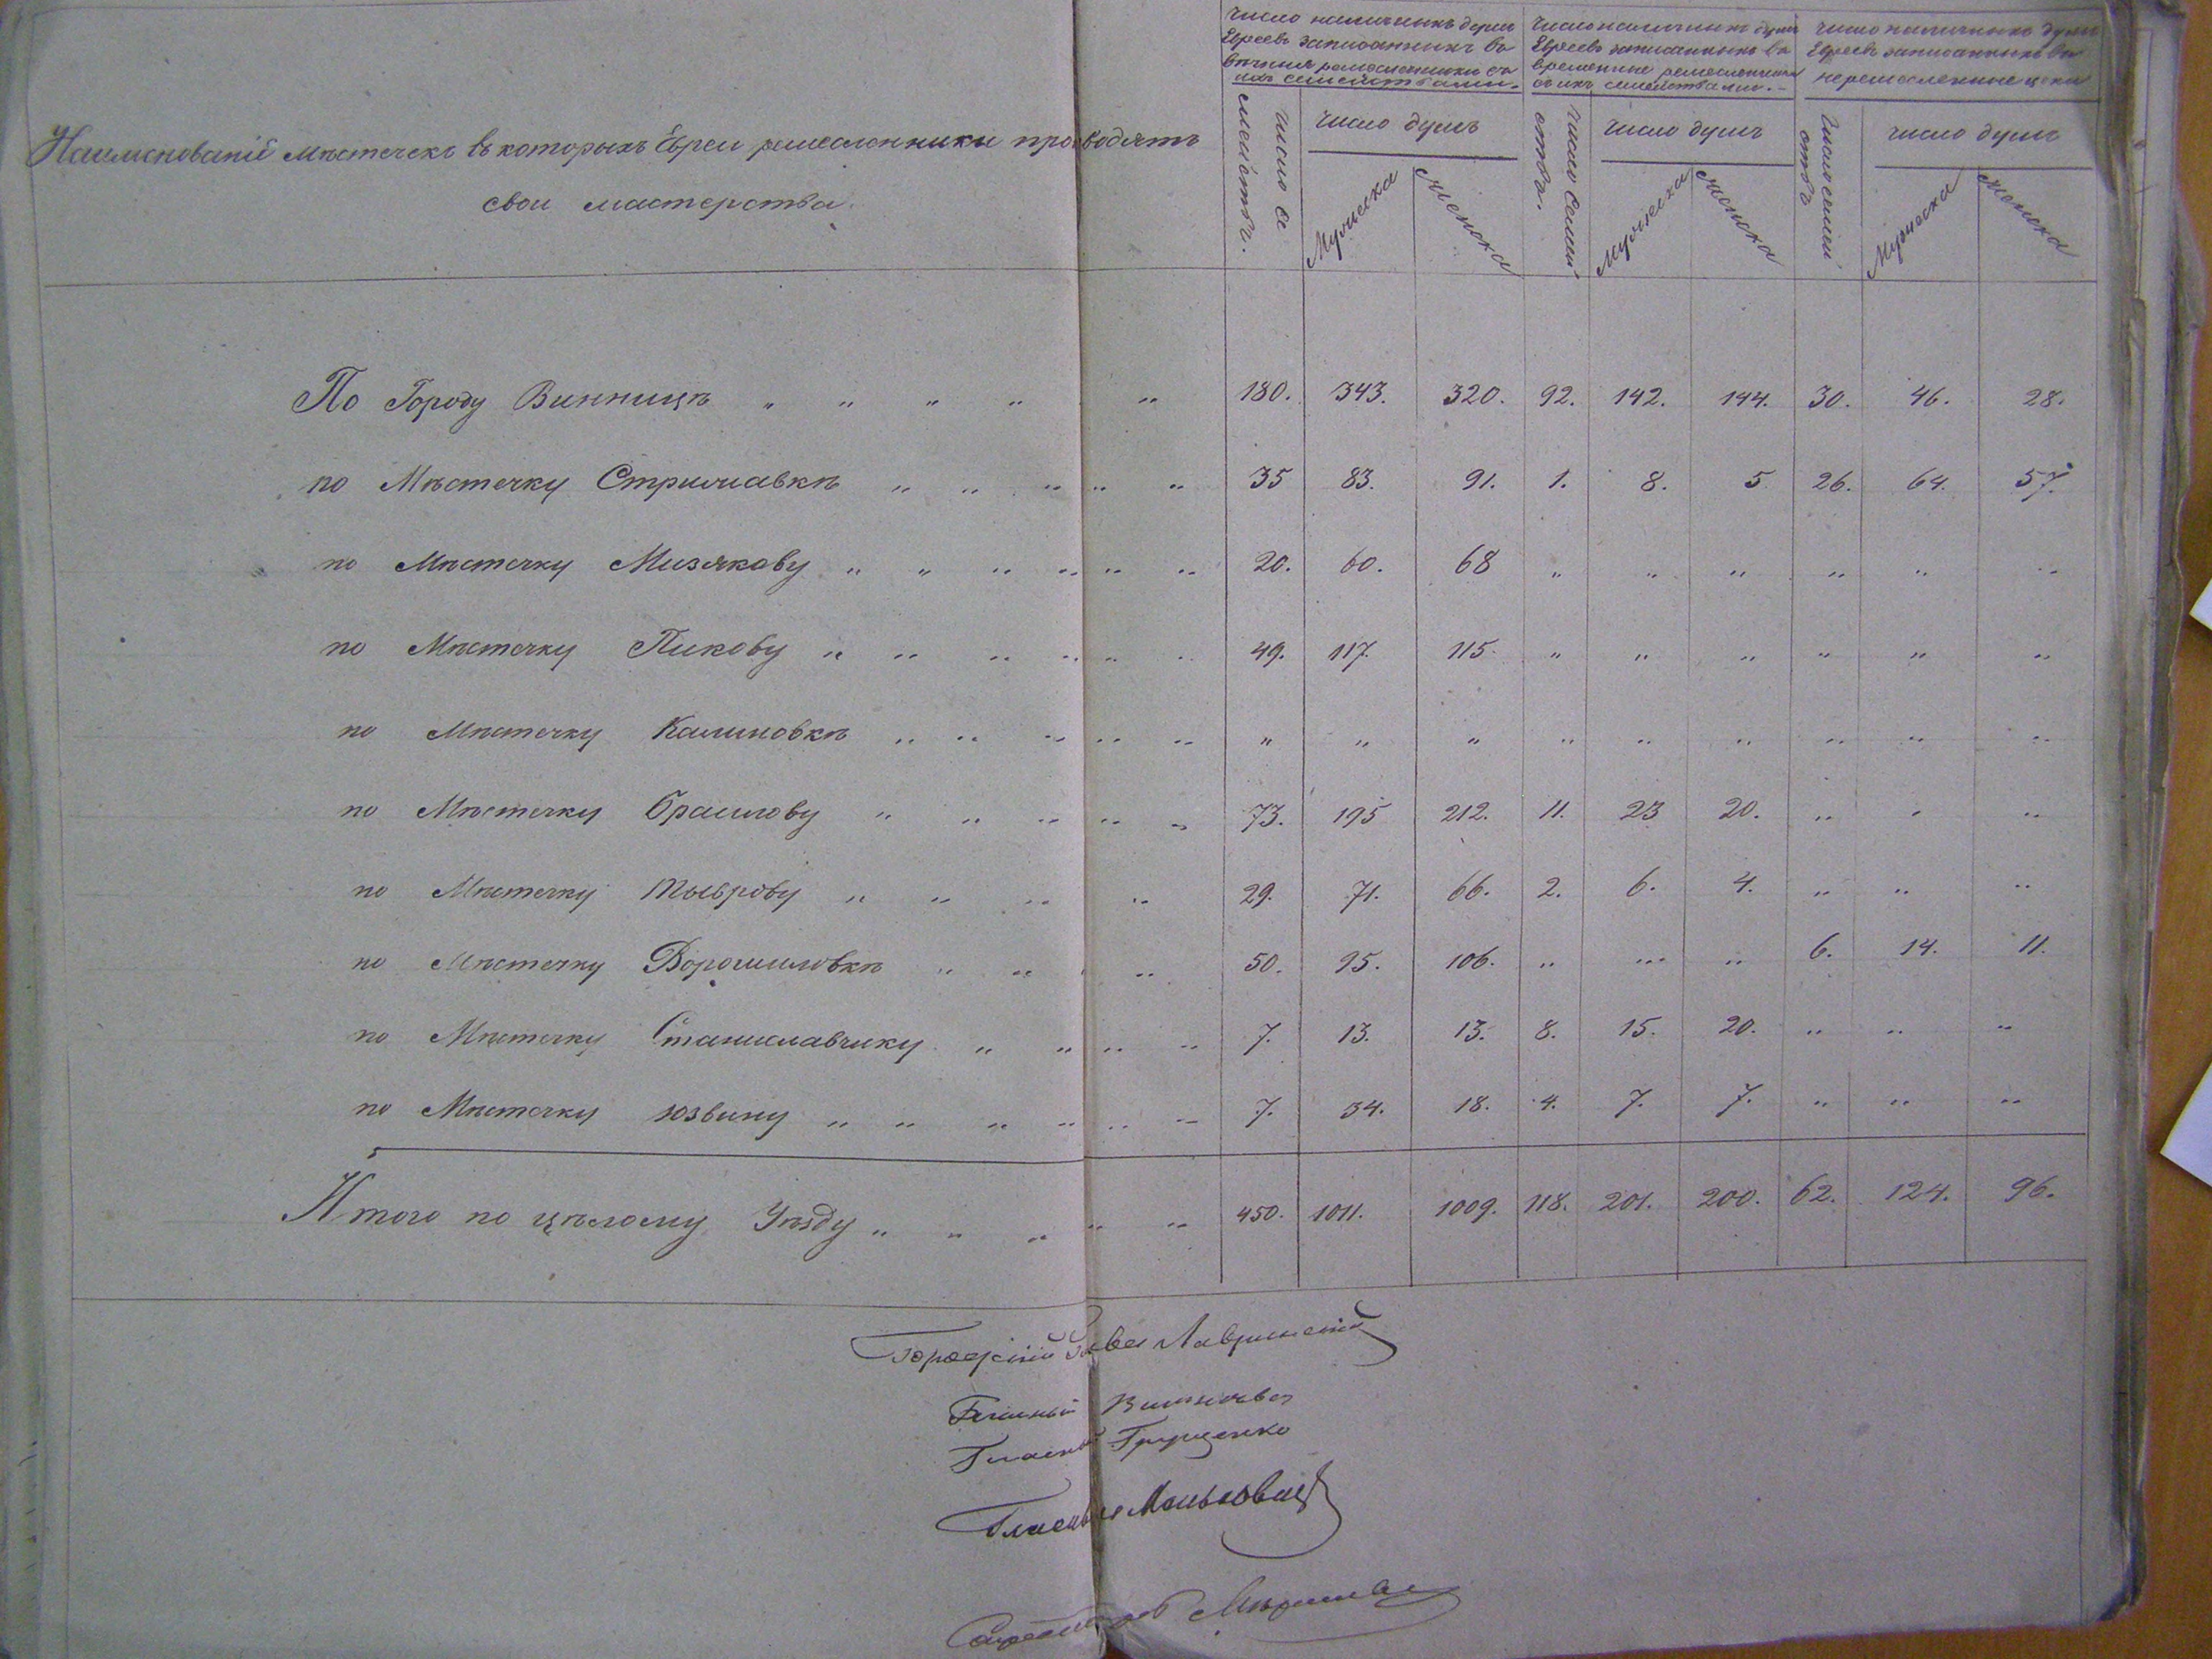 Наименованій мѣстечекъ въ которыхъ Евреи ремесленники производятъ
свои мастерства.
Число наличныхъ душъ
Евреевъ записанныхъ въ
вѣчныя ремесленники съ
ихъ семействами.
Число наличныхъ душъ
Евреевъ записанныхъ въ
временные ремесленники
съ ихъ семействами.
Число наличныхъ душъ
Евреевъ записанныхъ въ
неремесленные цехи
Число се
мействъ.
Число душъ
Мужеска
Женска
Число семей
ства.
Число душъ
Мужеска
Женска
Число семей
ствъ
Число душъ
Мужеска
Женска
По Городу Винницѣ „ „ „ „ „ 180. 343. 320. 92. 142. 144. 30. 46. 28.
по Мѣстечку Стрижавкѣ „ „ „ „ „ 35 83. 91. 1. 8. 5 26. 64. 57.
по Мѣстечку Мизякову „ „ „ „ „ „ 20. 60. 68 „ „ „ „ „ „
по Мѣстечку Пикову „ „ „ „ „ „ 49. 117. 115. „ „ „ „ „ „
по Мѣстечку Калиновкѣ „ „ „ „ „ „ „ „ „ „ „ „ „ „
по Мѣстечку Браилову „ „ „ „ „ 73. 195 212. 11. 23 20. „ „ „
по Мѣстечку Тыврову „ „ „ „ 29. 71. 66. 2. 6. 4. „ „ „
по Мѣстечку Ворошиловкѣ „ „ „ 50. 95. 106. „ „ „ 6. 14. 11.
по Мѣстечку Станиславчику „ „ „ „ 7. 13. 13. 8. 15. 20. „ „ „
по Мѣстечку Юзвину „ „ „ „ „ „ 7. 34. 18. 4. 7. 7. „ „ „
Итого по цѣлому Уѣзду „ „ „ „ „ 450. 1011. 1009. 118. 201. 200. 62. 124. 96.
Городской Голова
Гласный
Гласный Грищенко
Гласный Маньковский
Секретарь